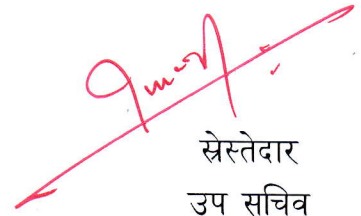 स्रेस्तेदार
उप सचिव